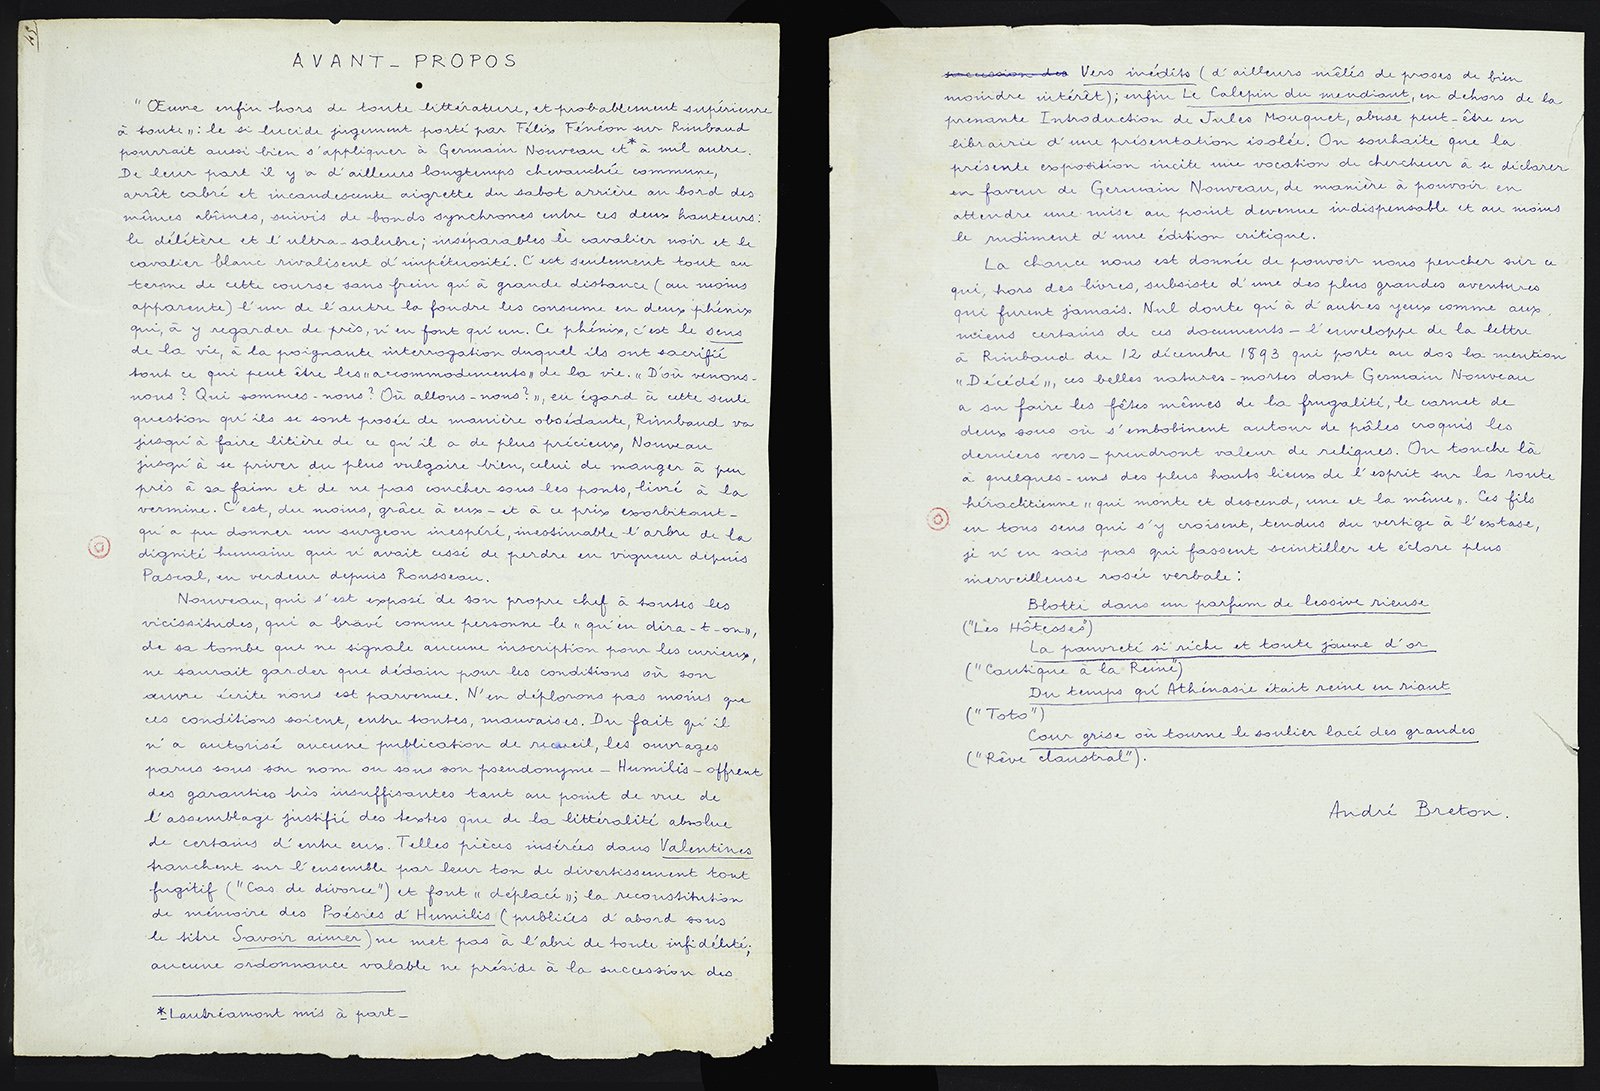 AVANT-PROPOS
"Œuvre enfin hors de toute littérature, et probablement supérieure
à toute": le si lucide jugement porté par Félix Fénéon sur Rimbaud
pourrait aussi bien s'appliquer à Germain Nouveau et* à nul autre.
De leur part il y a d'ailleurs longtemps chevauchée commune,
arrêt cabré et incandescente aigrette du sabot arrière au bord des
mêmes abîmes, suivis de bonds synchrones entre ces deux hauteurs:
le délétère et l'ultra-salubre; inséparables le cavalier noir et le
cavalier blanc rivalisent d'impétuosité. C'est seulement tout au
terme de cette course sans frein qu'à grande distance (au moins
apparente) l'un de l'autre la foudre les consume en deux phénix
qui, à y regarder de près, n'en font qu'un. Ce phénix, c'est le sens
de la vie, à la poignante interrogation duquel ils ont sacrifié
tout ce qui peut être les « accommodements » de la vie. « D'où venons-
nous? Qui sommes-nous? Où allons-nous? », eu égard à cette seule
question qu'ils se sont posée de manière obsédante, Rimbaud va
jusqu'à faire litière de ce qu'il a de plus précieux, Nouveau
jusqu'à se priver du plus vulgaire bien, celui de manger à peu
près à sa faim et de ne pas coucher sous les ponts, livré à la
vermine. C'est, du moins, grâce à eux - et à ce prix exorbitant -
qu'a pu donner un surgeon inespéré, inestimable l'arbre de la
dignité humaine qui n'avait cessé de perdre en vigueur depuis
Pascal, en verdeur depuis Rousseau.
Nouveau, qui s'est exposé de son propre chef à toutes les
vicissitudes, qui a bravé comme personne le « qu'en dira-t-on »,
de sa tombe que ne signale aucune inscription pour les curieux,
ne saurait garder que dédain pour les conditions où son
œuvre écrite nous est parvenue. N'en déplorons pas moins que
ces conditions soient, entre toutes, mauvaises. Du fait qu'il
n'a autorisé aucune publication de recueil, les ouvrages
parus sous son nom ou sous son pseudonyme - Humilis - offrent
des garanties très insuffisantes tant au point de vue de
l'assemblage justifié des textes que de la littéralité absolue
de certains d'entre eux. Telles pièces insérées dans Valentines
tranchent sur l'ensemble par leur ton de divertissement tout
fugitif ("Cas de divorce") et font « déplacé »; la reconstitution
de mémoire des Poésies d'Humilis (publiées d'abord sous
le titre Savoir aimer) ne met pas à l'abri de toute infidélité;
aucune ordonnance valable ne préside à la succession des
* Lautréamont mis à part -
succession des Vers inédits (d'ailleurs mêlés de proses de bien
moindre intérêt); enfin Le Calepin du mendiant, en dehors de la
prenante Introduction de Jules Mouquet, abuse peut-être en
librairie d'une présentation isolée. On souhaite que la
présente exposition incite une vocation de chercheur à se déclarer
en faveur de Germain Nouveau, de manière à pouvoir en
attendre une mise au point devenue indispensable et au moins
le rudiment d'une édition critique.
La chance nous est donnée de pouvoir nous pencher sur ce
qui, hors des livres, subsiste d'une des plus grandes aventures
qui furent jamais. Nul doute qu'à d'autres yeux comme aux
miens certains de ces documents - l'enveloppe de la lettre
à Rimbaud du 12 décembre 1893 qui porte au dos la mention
« Décédé », ces belles natures-mortes dont Germain Nouveau
a su faire les fêtes mêmes de la frugalité, le carnet de
deux sous où s'embobinent autour de pâles croquis les
derniers vers - prendront valeur de reliques. On touche là
à quelques-uns des plus hauts lieux de l'esprit sur la route
héraclitienne « qui monte et descend, une et la même ». Ces fils
en tous sens qui s'y croisent, tendus du vertige à l'extase,
je n'en sais pas qui fassent scintiller et éclore plus
merveilleuse rosée verbale:
Blotti dans un parfum de lessive rieuse
("Les Hôtesses")
La pauvreté si riche et toute jaune d'or
("Cantique à la Reine")
Du temps qu'Athénasie était reine en riant
("Toto")
Cour grise où tourne le soulier lacé des grandes
("Rêve claustral").
André Breton.